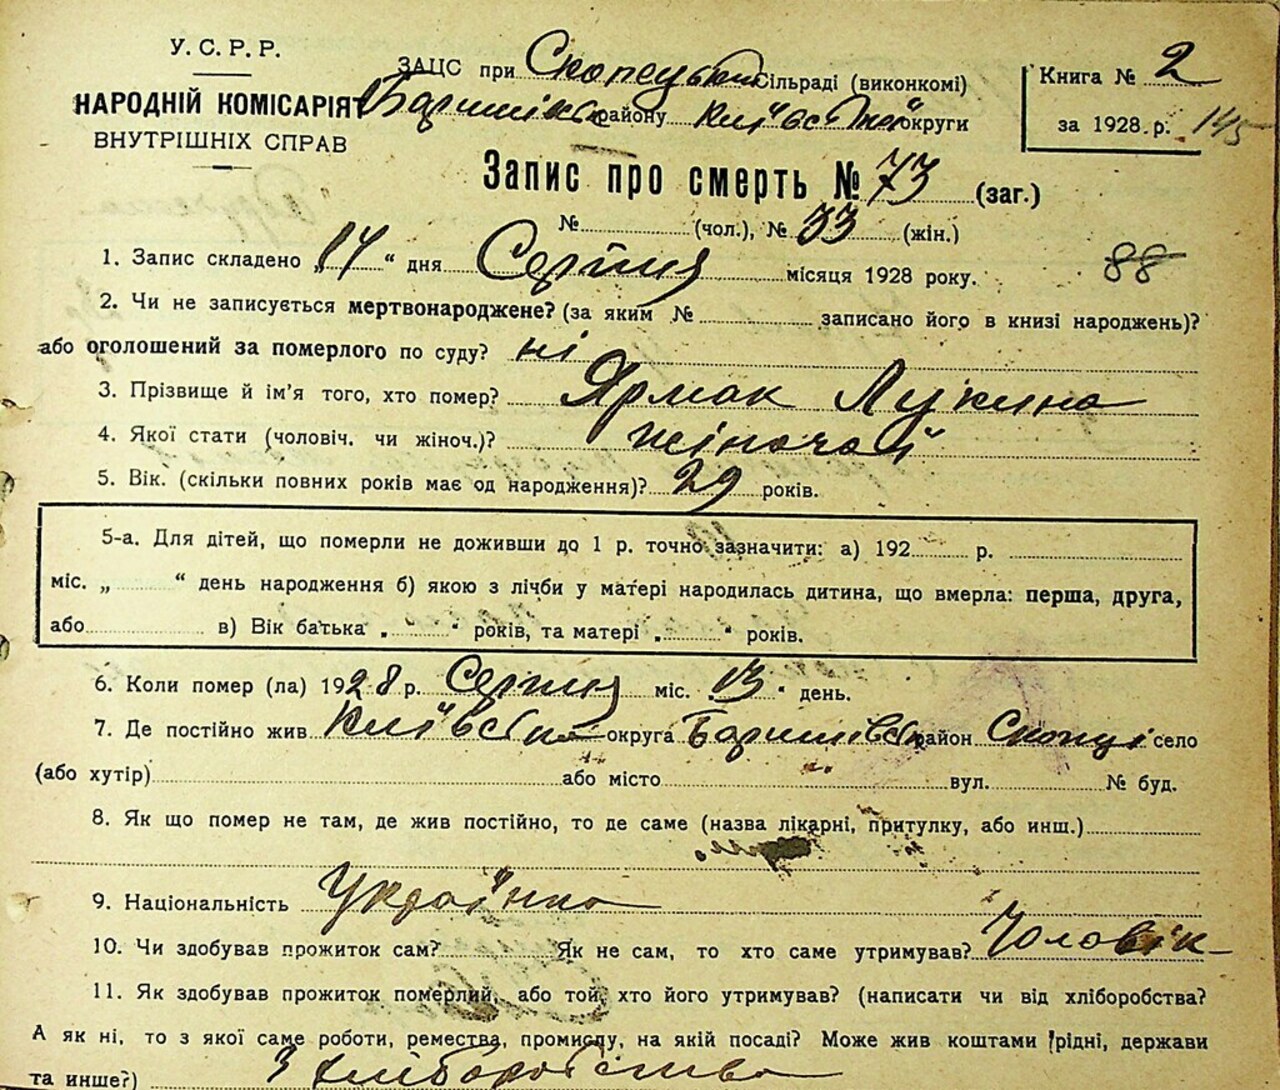 У. С. Р. Р.
НАРОДНІЙ КОМІСАРІЯТ
ВНУТРІШНІХ СПРАВ
ЗАЦС при Скопецькій Сільраді (виконкомі)
Баришівськ району Київської округи
Книга № 2
за 1928 р. 145
Запис про смерть № 73 (заг.)
№ (чол.), № 33 (жін.)
88
1. Запис складено „14“ дня Серпня місяця 1928 року.
2. Чи не записується мертвонароджене? (за яким № записано його в книзі народжень)?
або оголошений за померлого по суду? ні
3. Прізвище й ім'я того, хто помер? Ярмак Лукина
4. Якої стати (чоловіч. чи жіноч.)? жіночої
5. Вік. (скільки повних років має од народження)? 29 років.
5-а. Для дітей, що померли не доживши до 1 р. точно зазначити: а) 192 р.
міс. „ “ день народження б) якою з лічби у матері народилась дитина, що вмерла: перша, друга,
або в) Вік батька „ “ років, та матері „ “ років.
6. Коли помер (ла) 1928 р. Серпня міс. „13“ день.
7. Де постійно жив Київська округа Баришівськ район Скопці село
(або хутір) або місто вул. № буд.
8. Як що помер не там, де жив постійно, то де саме (назва лікарні, притулку, або инш.)
9. Національність Українка
10. Чи здобував прожиток сам? Як не сам, то хто саме утримував? Чоловік
11. Як здобував прожиток померлий, або той, хто його утримував? (написати чи від хліборобства?
А як ні, то з якої саме роботи, ремества, промислу, на якій посаді? Може жив коштами рідні, держави
та инше?) З хліборобства